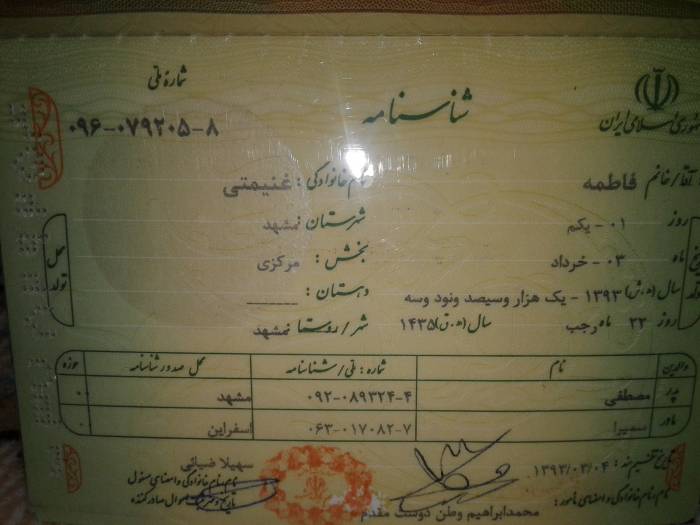 شماره ملی
شناسنامه
جمهوری اسلامی ایران
۰۹۶-۰۷۹۲۰۵-۸
آقا/خانم فاطمه نام خانوادگی: غنیمتی
روز ۰۱ - یکم شهرستان: مشهد
ماه ۰۳ - خرداد بخش: مرکزی
سال (ه.ش) ۱۳۹۳ - یک هزار وسیصد ونود وسه دهستان: ــــــ
روز ۲۲ ماه رجب سال (ه.ق) ۱۴۳۵ شهر/روستا: مشهد
محل تولد
والدین نام شماره: ملی/شناسنامه محل صدور شناسنامه حوزه
پدر مصطفی ۰۹۲-۰۸۹۳۲۴-۴ مشهد ۰۰
مادر سمیرا ۰۶۳-۰۱۷۰۸۲-۷ اسفراین ۰
تاریخ تنظیم سند: ۱۳۹۳/۰۳/۰۴ سهیلا ضیائی
نام، نام خانوادگی و امضای مأمور: نام، نام خانوادگی و امضای مسئول
محمدابراهیم وطن دوست مقدم